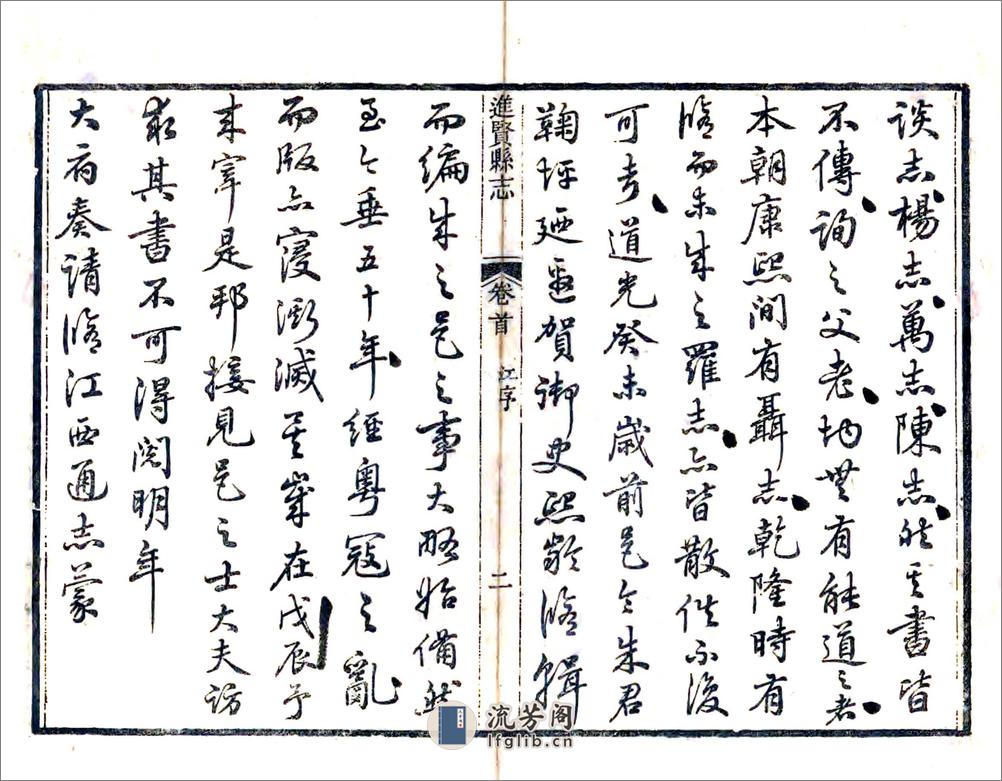 談志楊志萬志陳志然其書皆
不傳詢之父老均無有能道之者
本朝康熙間有聶志乾隆時有
脩而未成之羅志亦皆散佚不復
可考道光癸未歲前邑令朱君
鞠坪廼延賀御史熙齡脩輯
進賢縣志
卷首
江序
二
而編成之邑之事大略始備然
至今垂五十年經粵寇之亂
而版亦寖漸滅其歲在戊辰予
來宰是邦接見邑之士大夫訪
求其書不可得閱明年
大府奏請脩江西通志蒙
流芳阁
lfglib.cn